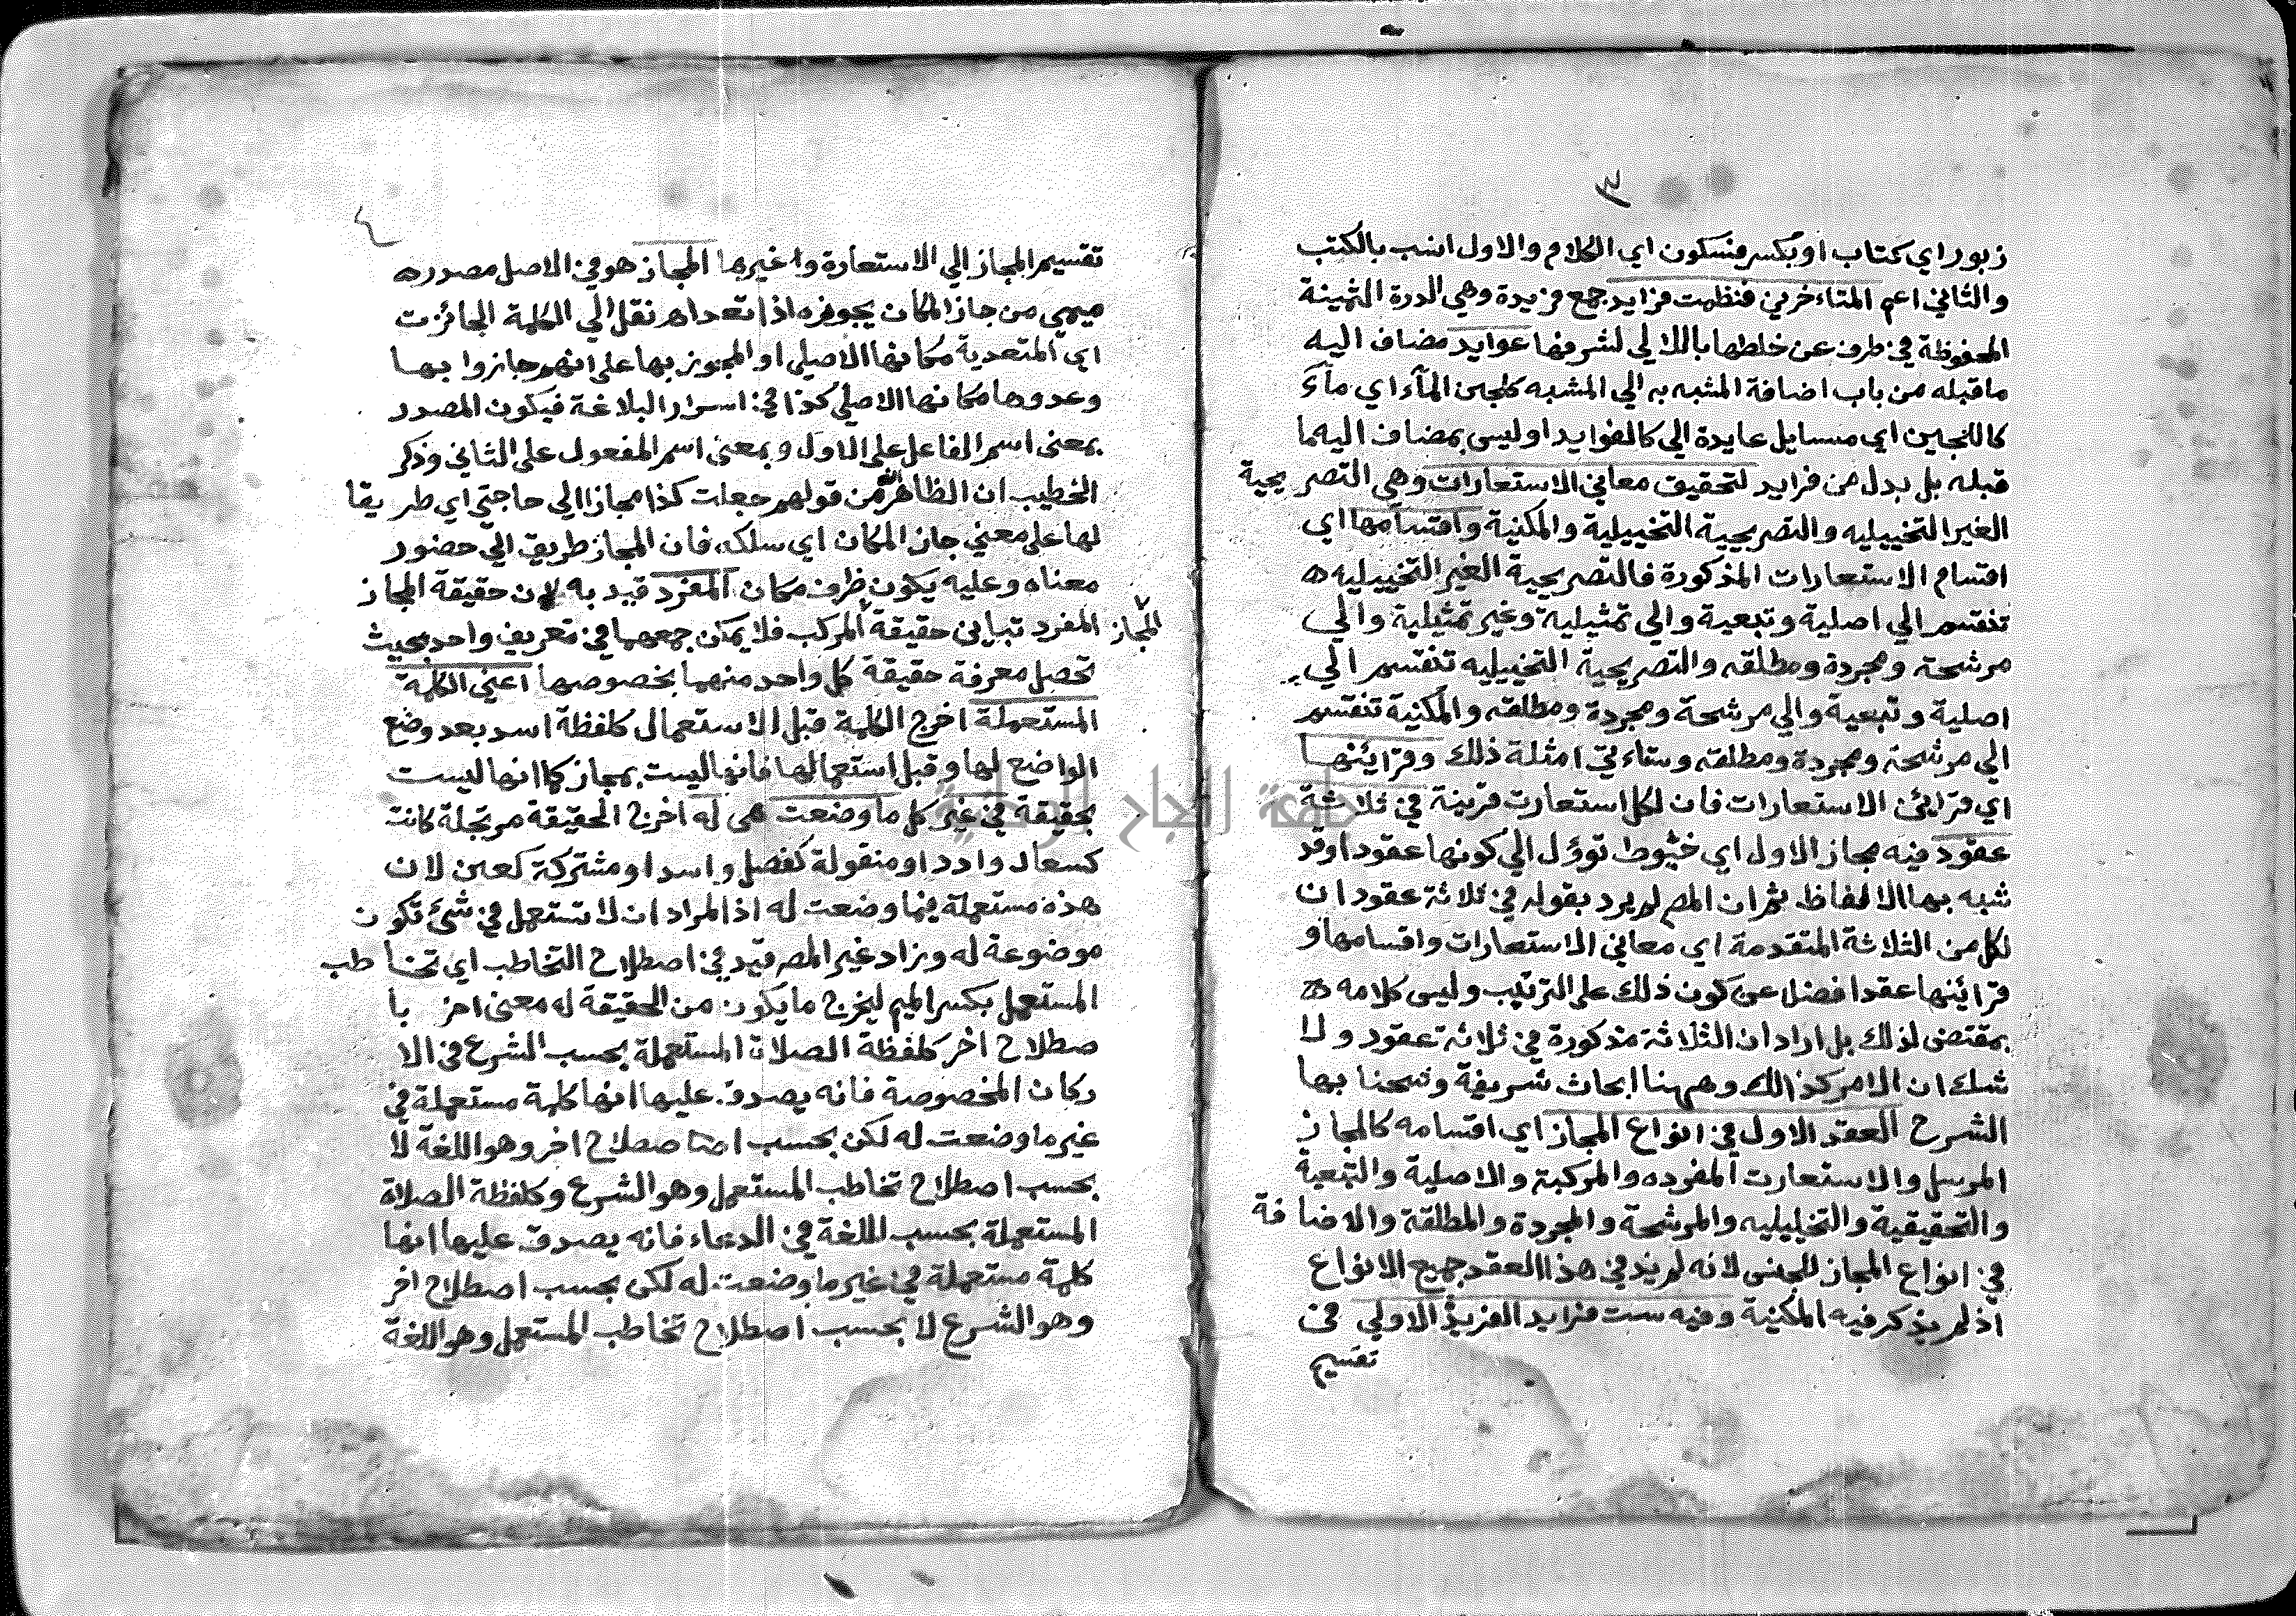 ٣
زبور اي كتاب او بكسر فسكون اي الكلام والاول انسب بالكتب
والثاني اعم المتاءخرين فنظمت فرايد جمع فريدة وهي الدرة الثمينة
المحفوظة في ظرف عن خلطها باللالي لشرفها عوايد مضاف اليه
ماقبله من باب اضافة المشبه به الي المشبه كلجين المآء اي مآء
كاللجين اي مسايل عايدة الي كالفوايد او ليس بمضاف اليه ما
قبله بل بدل من فرايد لتحقيق معاني الاستعارات وهي التصريحية
الغير التخييليه والتصريحية التخييلية والمكنية واقسامها اي
اقسام الاستعارات المذكورة فالتصريحية الغير التخييليه
تنقسم الي اصلية وتبعية والي تمثيلية وغير تمثيلية والي
مرشحة ومجردة ومطلقه والتصريحية التخييليه تنقسم الي
اصلية وتبعية والي مرشحة ومجردة ومطلقه والمكنية تنقسم
الي مرشحة ومجردة ومطلقه وستاءتي امثلة ذلك وقراينها
اي قرائن الاستعارات فان لكل استعارت قرينة في ثلاثة
عقود فيه مجاز الاول اي خيوط تؤول الي كونها عقودا وقد
شبه بها الالفاظ ثم ان المص لم يرد بقوله في ثلاثة عقود ان
لكل من الثلاثة المتقدمة اي معاني الاستعارات واقسامها و
قرائنها عقدا فضلا عن كون ذلك علي الترتيب وليس كلامه
بمقتض لذلك بل اراد ان الثلاثة مذكورة في ثلاثة عقود ولا
شك ان الامر كذالك وههنا ابحاث شريفة وشحنا بها
الشرح العقد الاول في انواع المجاز اي اقسامه كالمجاز
المرسل والاستعارت المفرده والمركبة والاصلية والتبعية
والتحقيقية والتخييليه والمرشحة والمجردة والمطلقة والاضافة
في انواع المجاز للجنس لانه لم يرد في هذا العقد جميع الانواع
اذ لم يذكر فيه المكنية وفيه ست فرايد الفريدة الاولي في
تقسيم
٤
تقسيم المجاز الي الاستعارة وغيرها المجاز هو في الاصل مصدر
ميمي من جاز المكان يجوزه اذا تعداه نقل الي الكلمة الجائزت
اي المتعدية مكانها الاصلي او المجوز بها علي انهم جازوا بها
وعدوها مكانها الاصلي كذا في اسرار البلاغة فيكون المصدر
بمعني اسم الفاعل علي الاول وبمعني اسم المفعول علي الثاني وذكر
الخطيب ان الظاهر من قولهم جعلت كذا مجازا الي حاجتي اي طريقا
لها علي معني جاز المكان اي سلكه فان المجاز طريق الي حضور
معناه وعليه يكون ظرف مكان المفرد قيد به لان حقيقة المجاز
المفرد تباين حقيقة المركب فلا يمكن جمعهما في تعريف واحد بحيث
المجاز
تحصل معرفة حقيقة كل واحد منهما بخصوصها اعني الكلمة
المستعملة اخرج الكلمة قبل الاستعمال كلفظة اسد بعد وضع
الواضع لها وقبل استعمالها فانها ليست بمجاز كما انها ليست
بحقيقة في غير كل ما وضعت هي له اخرج الحقيقة مرتجلة كانت
كسعاد وادد او منقولة كفضل واسد او مشتركة كعين لان
هذه مستعملة فيما وضعت له اذ المراد ان لا تستعمل في شئ تكون
موضوعة له وزاد غير المص قيد في اصطلاح التخاطب اي تخاطب
المستعمل بكسر الميم ليخرج ما يكون من الحقيقة له معني اخر با
صطلاح اخر كلفظة الصلاة المستعملة بحسب الشرع في الا
ركان المخصوصة فانه يصدق عليها انها كلمة مستعملة في
غير ما وضعت له لكن بحسب اصطلاح اخر وهو اللغة لا
بحسب اصطلاح تخاطب المستعمل وهو الشرع وكلفظة الصلاة
المستعملة بحسب اللغة في الدعاء فانه يصدق عليها انها
كلمة مستعملة في غير ما وضعت له لكن بحسب اصطلاح اخر
وهو الشرع لا بحسب اصطلاح تخاطب المستعمل وهو اللغة
جامعة النجاح الوطنية